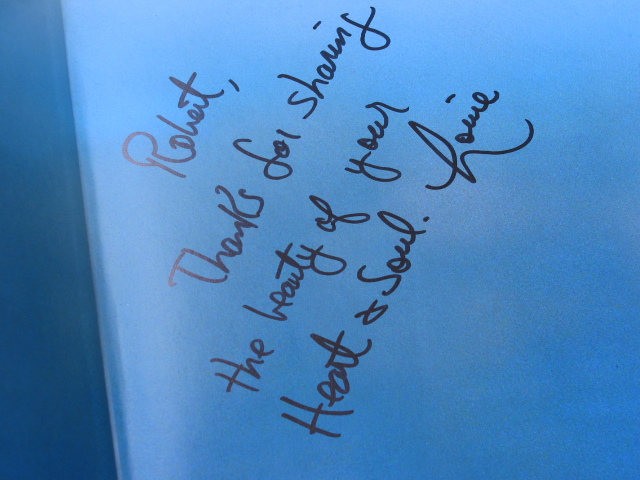 Robert,
Thanks for sharing
the beauty of your
Heart & Soul.